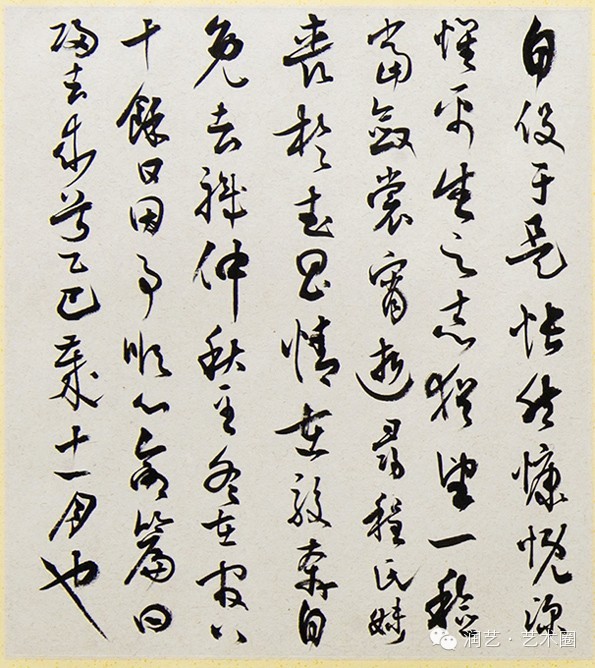 自役于是悵然慷慨深
愧平生之志猶望一稔
當斂裳宵逝尋程氏妹
喪於武昌情在駿奔自
免去職仲秋至冬在官八
十餘日因事順心命篇曰
歸去来兮乙巳歲十一月也
润艺·艺术圈